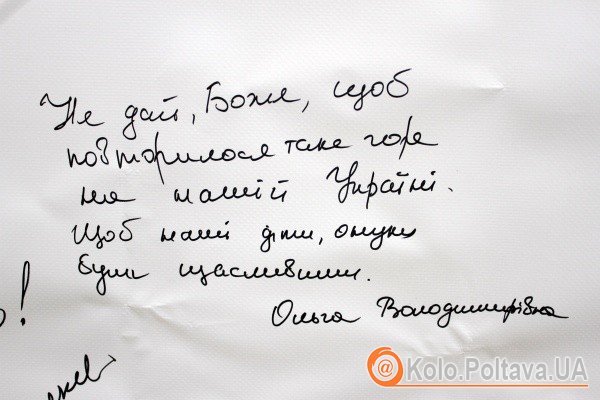 Не дай, Боже, щоб
повторилося таке горе
на нашій Україні.
Щоб наші діти, онуки
були щасливими.
Ольга Володимирівна
!
@ Kolo.Poltava.UA